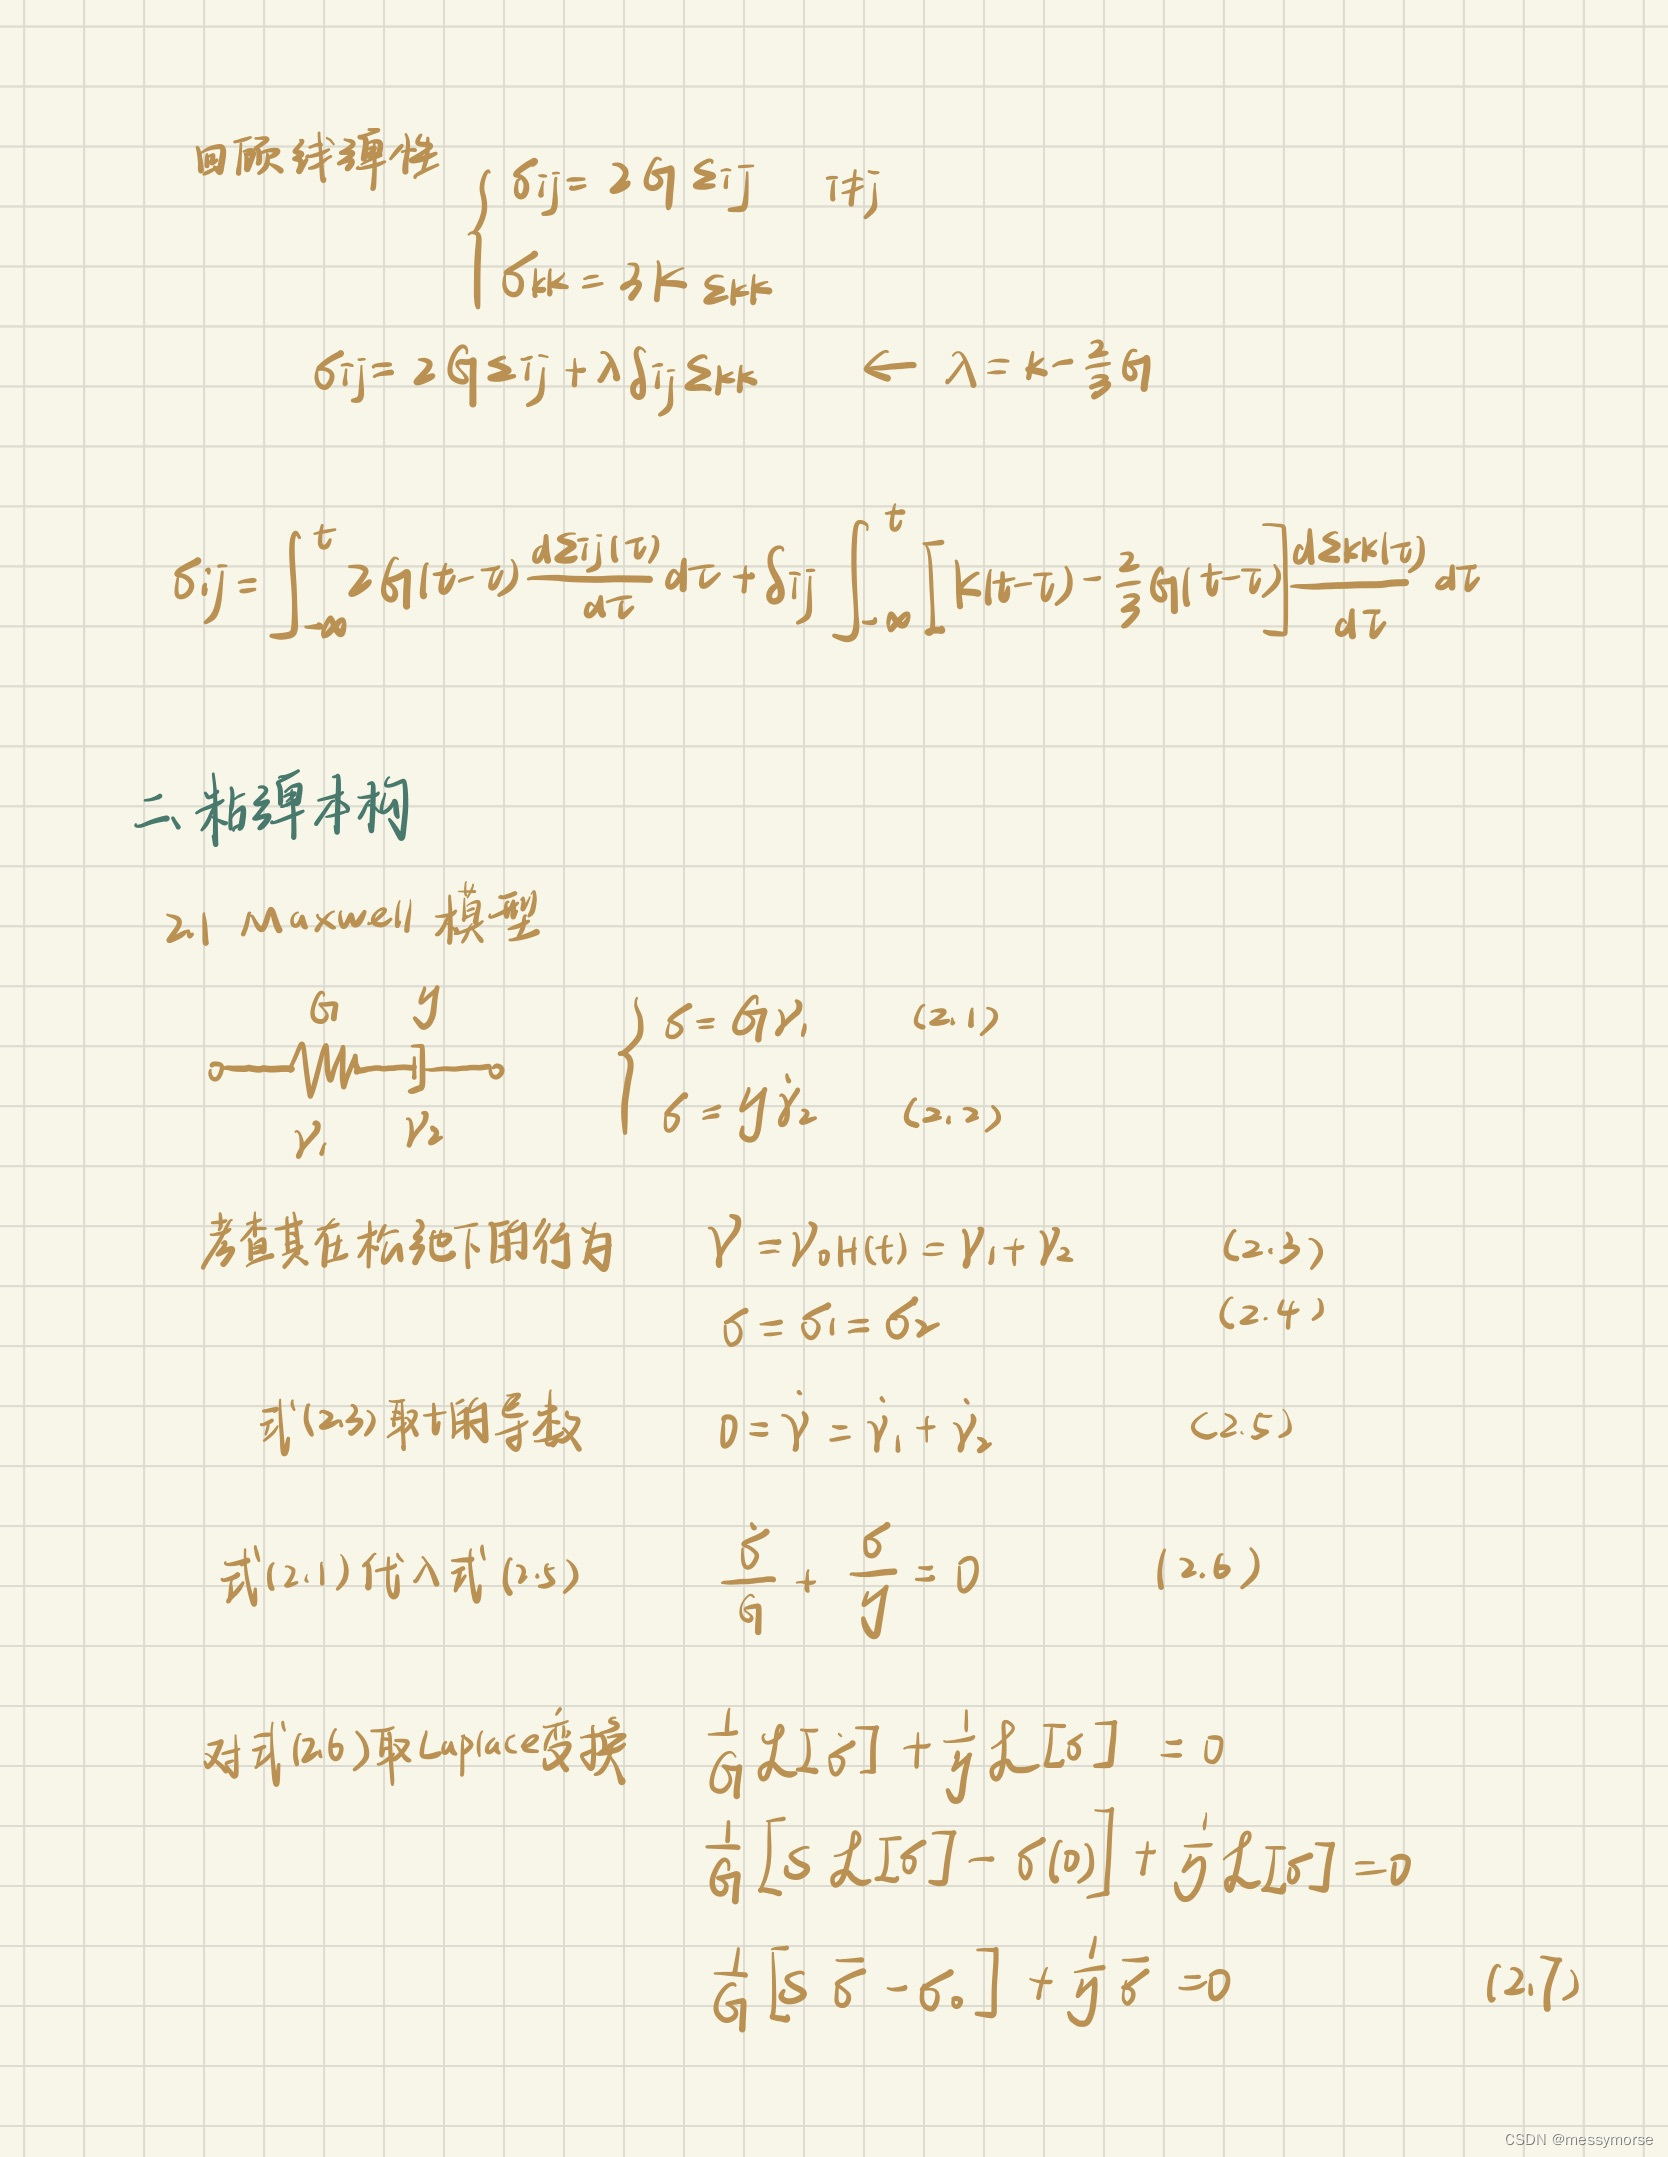 回顾线弹性
σij = 2Gεij  i≠j
σkk = 3K εkk
σij = 2Gεij + λδijεkk ← λ = K - 2/3 G
σij = ∫_{-∞}^{t} 2G(t-τ) dεij(τ)/dτ dτ + δij ∫_{-∞}^{t} [K(t-τ) - 2/3 G(t-τ)] dεkk(τ)/dτ dτ
二、粘弹本构
2.1 Maxwell 模型
G η
γ₁ γ₂
σ = Gγ₁ (2.1)
σ = ηγ̇₂ (2.2)
考查其在松弛下的行为 γ = γ₀H(t) = γ₁ + γ₂ (2.3)
σ = σ₁ = σ₂ (2.4)
式(2.3)取t的导数 0 = γ̇ = γ̇₁ + γ̇₂ (2.5)
式(2.1)代入式(2.5) σ̇/G + σ/η = 0 (2.6)
对式(2.6)取Laplace变换 1/G ℒ[σ̇] + 1/η ℒ[σ] = 0
1/G [s ℒ[σ] - σ(0)] + 1/η ℒ[σ] = 0
1/G [s σ̄ - σ₀] + 1/η σ̄ = 0 (2.7)
CSDN @messymorse